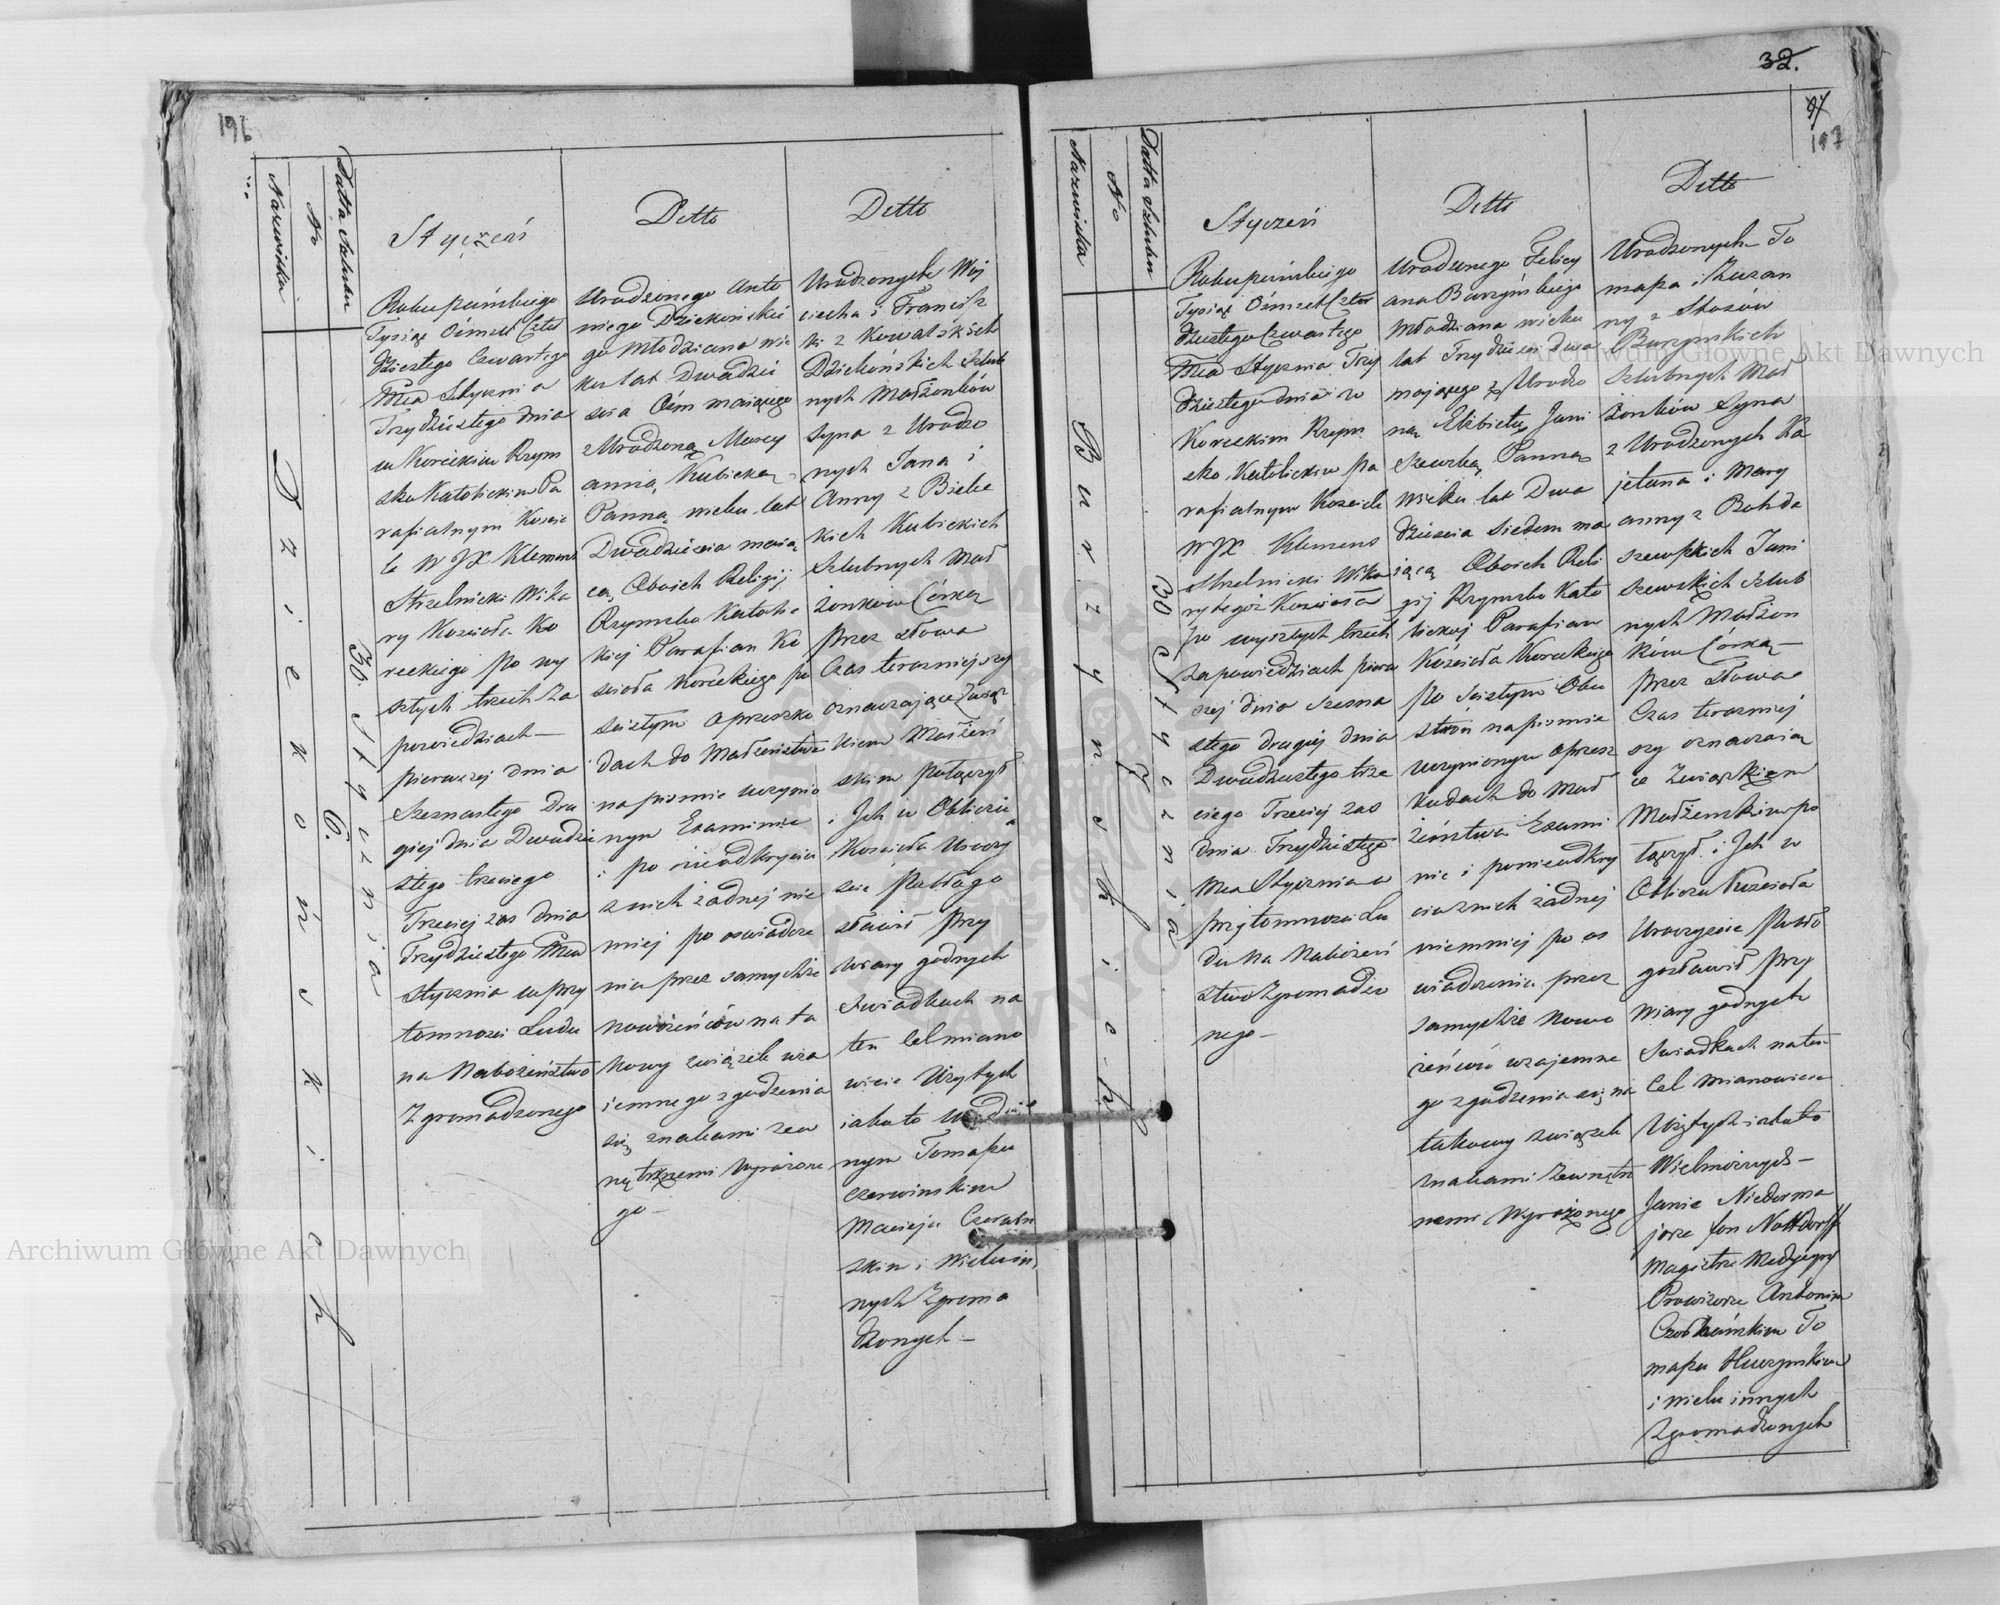 196
Datta Szlubu
No
Nazwiska
30. Stycznia
6.
Dziekońskich
Styczeń
Roku pańskiego
Tysiąc Ośmset Czter
dziestego Czwartego
Mca Stycznia
Trzydziestego dnia
w Koreckim Rzym
sko Katolickim Pa
rafialnym Koscie
le W JX Klemens
Strzelnicki Wika
ry Kozcioła Ko
reckiego po wy
szłych trzech Za
powiedziach—
pierwszej dnia
Szesnastego Dru
giej dnia Dwudzie
stego trzeciego
Trzeciej zas dnia
Trzydziestego Mca
stycznia w przy
tomnosci Ludu
na Nabożeństwo
Zgromadzonego
Detto
Urodzonego Anto
niego Dziekońskie
go Młodziana wie
ku lat Dwadzie
scia Ośm maiącego
z Urodzoną Maryj
anną Kubicką
Panną wieku lat
Dwadziescia maią
cą Oboich Religij
Rzymsko Katolic
kiej Parafian Ko
scioła Koreckiego po
scisłym oprzeszko
dach do Małżeństwa
na pismie uczynio
nym Examinie
i po nieodkryciu
z nich żadnej nie
mniej po oswiadcze
nia przez samychże
nowożeńców na ta
kowy związek wza
iemnego zgodzenia
się znakami zew
nętrznemi Wyrażone
go—
Detto
Urodzonych Woj
ciecha i Francisz
ki z Kowalskich
Dziekońskich Szlub
nych Małżonków
Syna z Urodzo
nych Jana i
Anny z Biele
kich Kubickich
Szlubnych Mał
żonkow Córką
przez słowa
Czas teraźniejszy
oznaczające Związ
kiem Małżeń
skim połączył
i Jch w Obliczu
Kościoła Uroczy
scie Pobłogo
sławił przy
wiary godnych
Swiadkach na
ten Cel miano
wicie Użytych
iako to Urodzo
nym Tomaszu
Czerwinskim
Macieju
skim i Wielu in
nych Zgroma
dzonych—
32.
97
197
Datta Szlubu
No
Nazwiska
30 Stycznia
7
Burzynskich
Styczeń
Roku pańskiego
Tysiąc Ośmset Czter
dziestego Czwartego
Mca Stycznia Trzy
dziestego dnia w
Koreckim Rzym
sko Katolickim pa
rafialnym Koscie
W JX Klemens
Strzelnicki Wika
ry tegoż Koscioła
po wyszłych trzech
zapowiedziach pierw
szej dnia szesna
stego drugiej dnia
Dwudziestego trze
ciego Trzeciej zas
dnia Trzydziestego
Mca Stycznia w
przytomnosci Lu
du na Nabożeń
stwo Zgromadzo
nego—
Detto
Urodzonego Felicy
ana Burzyńskiego
Młodziana wieku
lat Trzydziesci dwa
mającego z Urodzo
ną Elżbietą Jani
szewską Panną
Wieku lat Dwa
dziescia siedem ma
iącą Oboich Reli
gij Rzymsko Kato
lickiej Parafian
Kościoła Koreckiego
po scisłym Obu
stron na pismie
uczynionym oprzesz
kodach do Mał
żeństwa Exami
nie i ponieodkry
ciu z nich żadnej
niemniej po os
wiadczenia przez
samychże nowo
żeńców wzajemne
go zgodzenia się na
takowy związek
znakami Zewnętrz
nemi Wyrażonego
Detto
Urodzonych To
masza i Zuzan
ny z Stosów
Burzynskich
Szlubnych Mał
żonków Syna
z Urodzonych Ka
jetana i Mary
anny z Bohda
szewskich Jani
szewskich Szlub
nych Małżon
ków Córką—
przez słowa
Czas teraźniej
szy oznaczaią
ce Związkiem
Małżenskim po
łączył i Jch w
Obliczu Kościoła
Uroczyscie Pobło
gosławił przy
Wiary godnych
Swiadkach na ten
Cel Mianowicie
Użytych iakoto
Wielmożnych—
Janie
fon Nottdorff
Magistrze Medycyny
Prowizorze Antonim
To
maszu
i wielu innych
Zgromadzonych
Archiwum Główne Akt Dawnych
Archiwum Główne Akt Dawnych